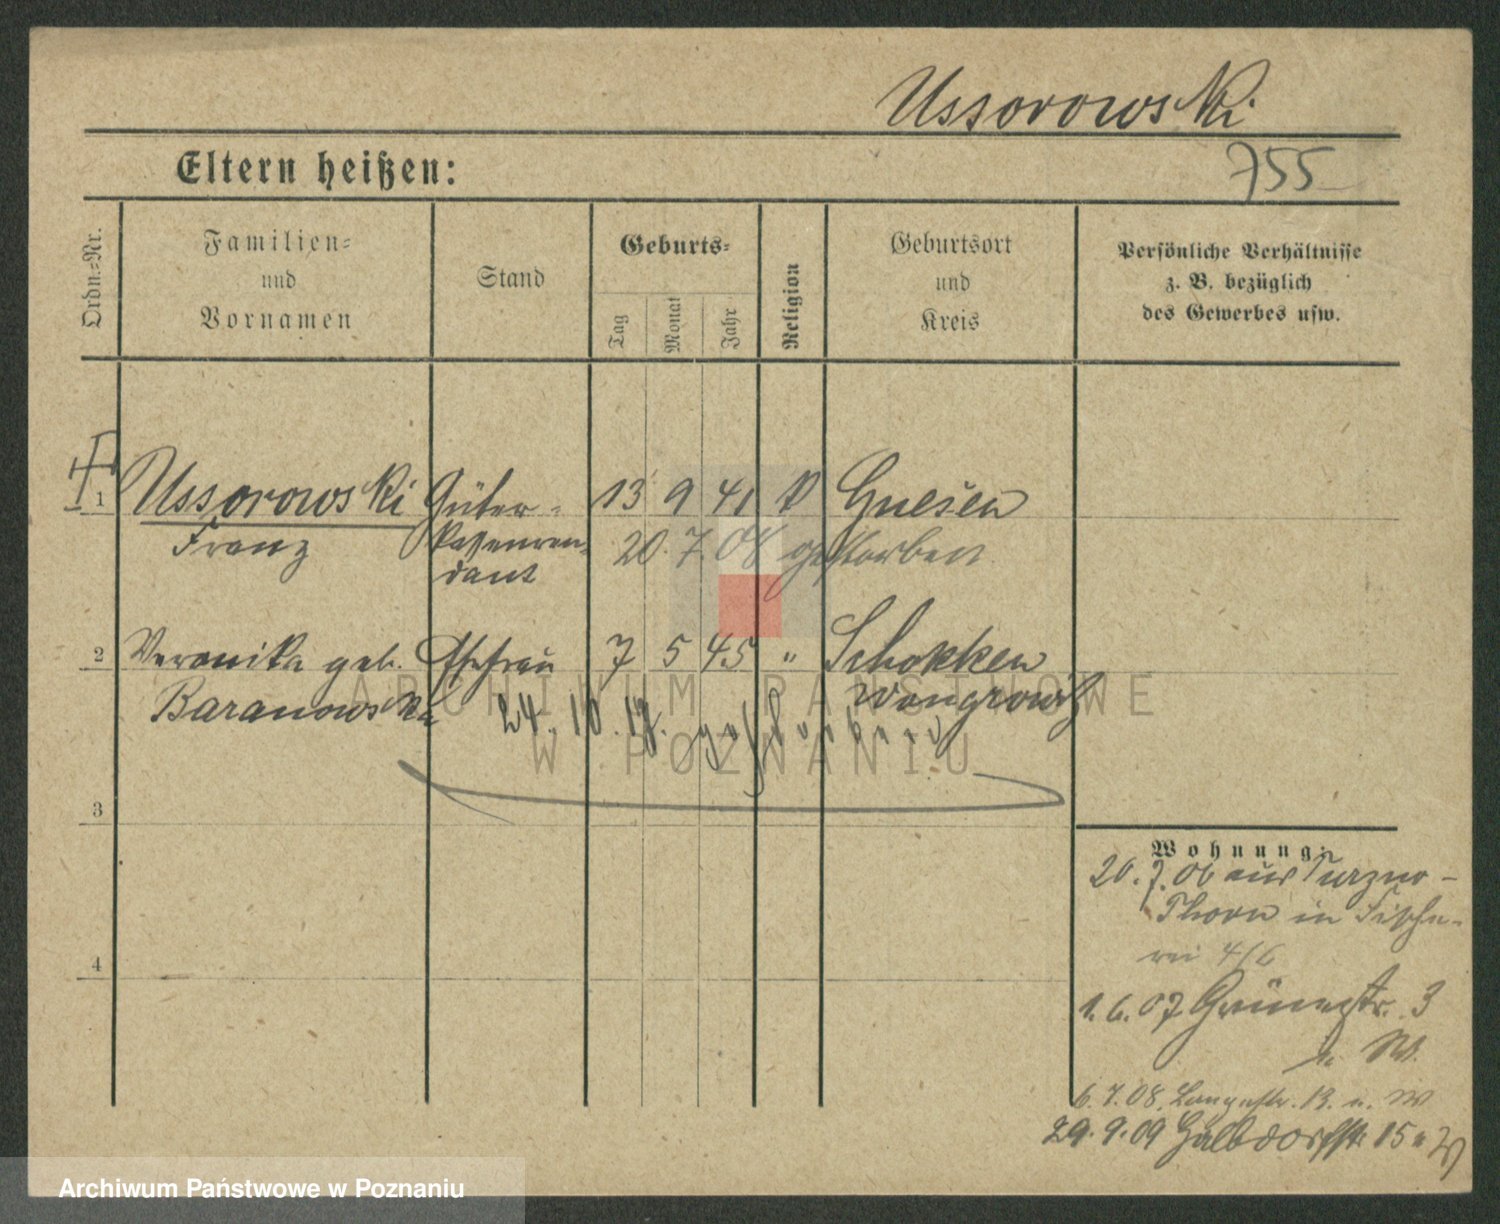 Ussorowski
755
Eltern heißen:
Ordn.-Nr.
Familien-
und
Vornamen
Stand
Geburts-
Tag
Monat
Jahr
Religion
Geburtsort
und
Kreis
Persönliche Verhältnisse
z. B. bezüglich
des Gewerbes usw.
1 Ussorowski Güter- 13 9 41 Gnesen
Franz kassenren- 20. 7. 08 gestorben
dant
2 Veronika geb. Ehefrau 7 5 45 " Schokken
Baranowska Wongrowitz
24. 10. 17. gestorben
3
4
Wohnung:
20. 7. 06 aus Turzno-
Thorn in Fische-
rei 4/6
1. 6. 07 Grünestr. 3
n. W.
6. 7. 08. Langestr. 13. n. W
29. 9. 09 Halbdorfstr. 15 n W
ARCHIWUM PAŃSTWOWE
W POZNANIU
Archiwum Państwowe w Poznaniu